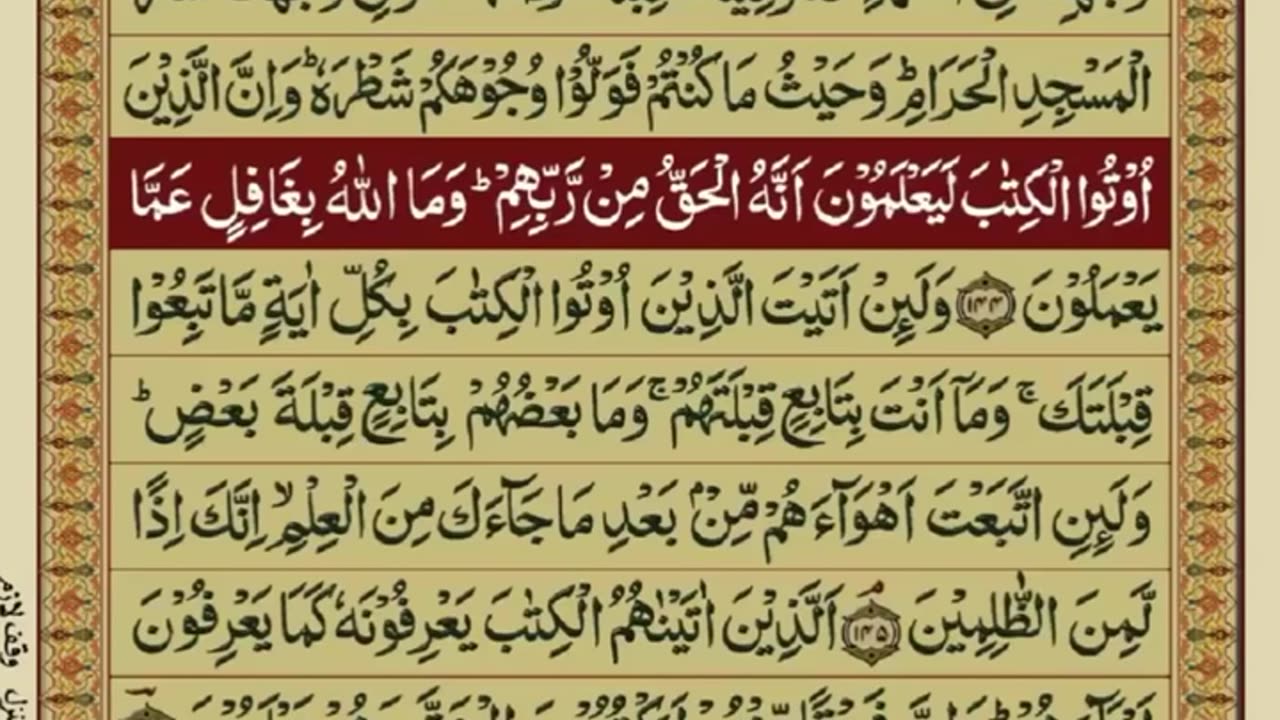 الْمَسْجِدِ الْحَرَامِ ؕ وَحَیْثُ مَا كُنْتُمْ فَوَلُّوْا وُجُوْهَكُمْ شَطْرَهٗ ؕ وَاِنَّ الَّذِیْنَ
اُوْتُوا الْكِتٰبَ لَیَعْلَمُوْنَ اَنَّهُ الْحَقُّ مِنْ رَّبِّهِمْ ؕ وَمَا اللّٰهُ بِغَافِلٍ عَمَّا
یَعْمَلُوْنَ ۝۱۴۴ وَلَىِٕنْ اَتَیْتَ الَّذِیْنَ اُوْتُوا الْكِتٰبَ بِكُلِّ اٰیَةٍ مَّا تَبِعُوْا
قِبْلَتَكَ ۚ وَمَاۤ اَنْتَ بِتَابِعٍ قِبْلَتَهُمْ ۚ وَمَا بَعْضُهُمْ بِتَابِعٍ قِبْلَةَ بَعْضٍ ؕ
وَلَىِٕنِ اتَّبَعْتَ اَهْوَآءَهُمْ مِّنْۢ بَعْدِ مَا جَآءَكَ مِنَ الْعِلْمِ ۙ اِنَّكَ اِذًا
لَّمِنَ الظّٰلِمِیْنَ ۝۱۴۵ اَلَّذِیْنَ اٰتَیْنٰهُمُ الْكِتٰبَ یَعْرِفُوْنَهٗ كَمَا یَعْرِفُوْنَ
وقف لازم